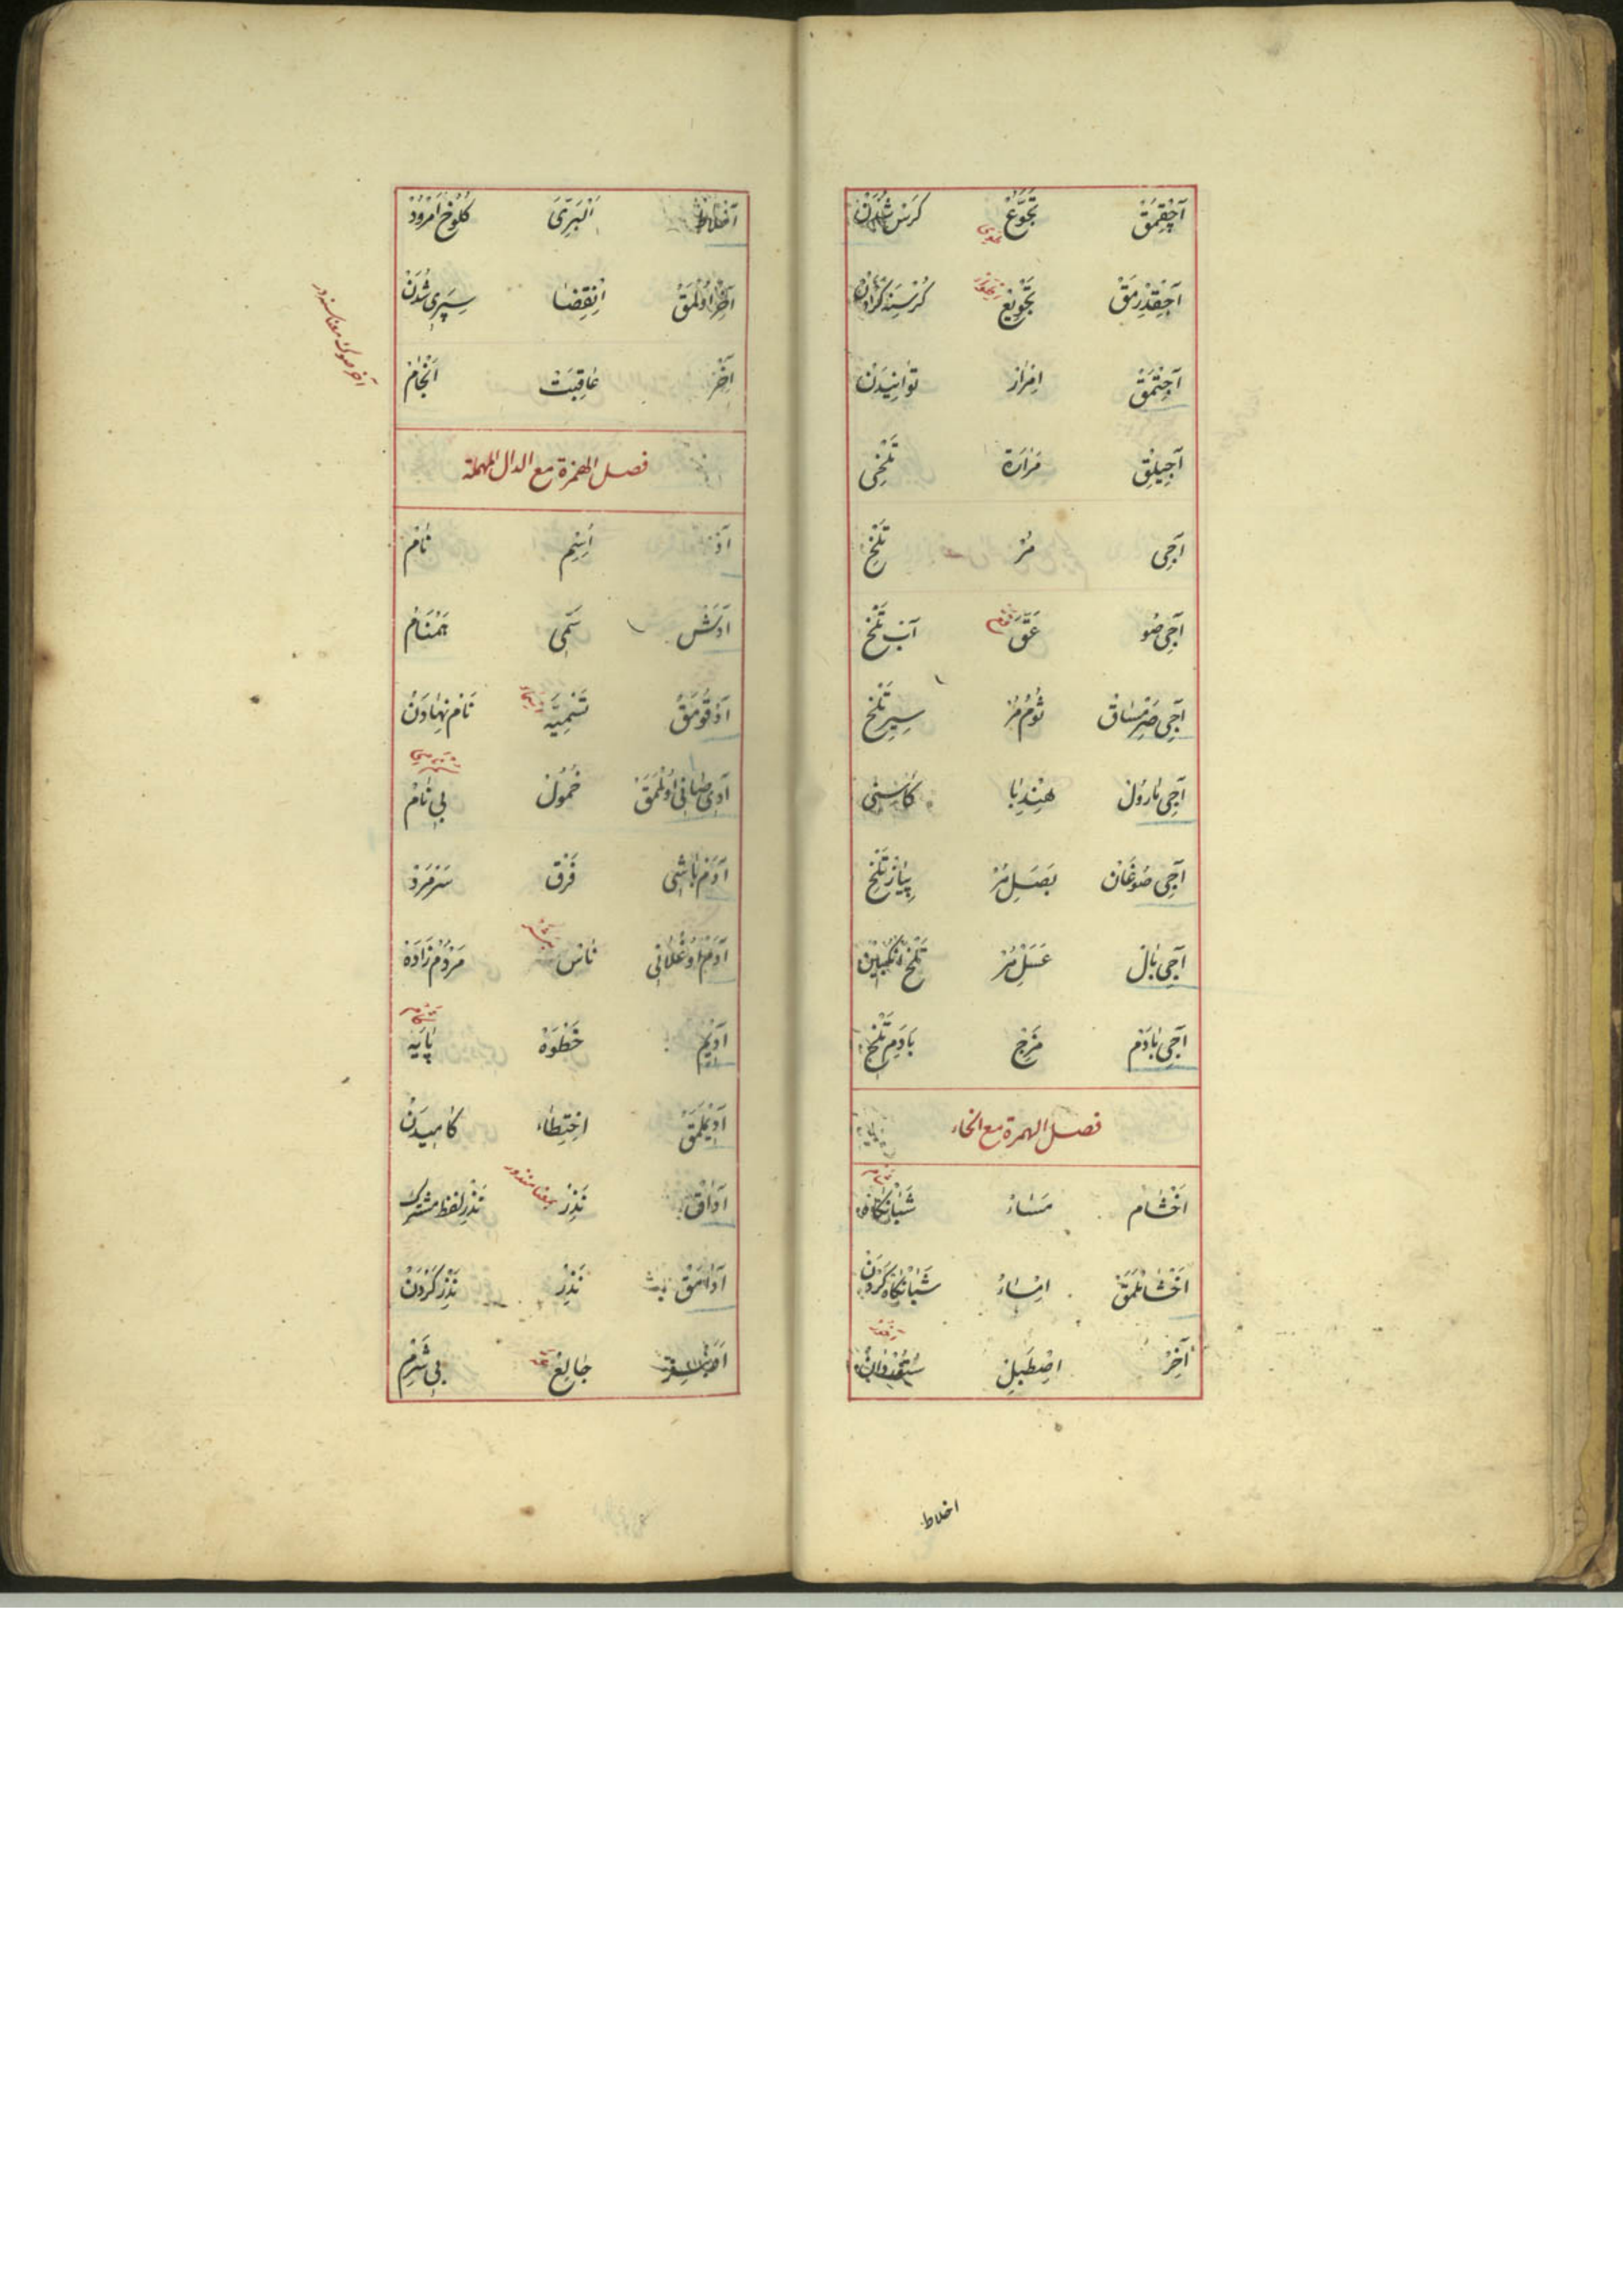 آجِقْمَقْ تَجَوُّعْ كُرَسْنَه شُدَنْ
آجِقْدِرْمَقْ تَجْوِيعْ كُرْسِنَه كَرْدَنْ
آجِتْمَقْ اِمْرَارْ
آجِيلِقْ مَرَارَة تَلْخِى
آجِى مُرْ تَلْخْ
آجِى صُو عَقّ آبِ تَلْخْ
آجِى صَرِمْسَاقْ ثُومِ مُرْ سِيرِ تَلْخْ
آجِى مَارُولْ هِنْدِبَا كَاسْنِى
آجِى صُوغَانْ بَصَلِ مُرْ پِيَازِ تَلْخْ
آجِى بَالْ عَسَلِ مُرْ تَلْخْ اَنْكَبِينْ
آجِى بَادَمْ مَزْجْ بَادَمِ تَلْخْ
فصل الهمزة مع الخاء
اَخْشَامْ مَسَاءْ شَبَانْكَاهْ
اَخْشَامْلَمَقْ اِمْسَاءْ شَبَانْكَاه كَرْدَنْ
آخِرْ اِصْطَبِلْ سُتُورْدَانْ
اخلاط
آخْلَاطْ كُلُوخْ اَمْرُودْ
آخِرْ اُولْمَقْ اِنْقِضَا سِپَرِى شُدَنْ
آخِرْ عَاقِبَتْ اَنْجَامْ
آخر صوك معناسنه در
فصل الهمزة مع الدال المهملة
آدْ اِسِمْ نَامْ
آدَشْ سَمِّى هَمْنَامْ
آدْ قُومَقْ تَسْمِيَّه نَامْ نِهَادَنْ
خُمُولْ بِى نَامْ
آدَمْ بَاشِى فَرْقْ سَرِ مَرْدْ
آدَمْ اُوغْلَانِى نَاسْ مَرْدُمْ زَادَهْ
آدِيمْ خَطْوَهْ پَايَهْ
آدِيمْلَمَقْ اِخْتِطَاءْ كَامِيدَنْ
آدَاقْ نَذِرْ بمعنا منذور نَذْرِ لفظ مشترك
آدَامَقْ نَذِرْ نَذِرْ كَرْدَنْ
جَالِعْ بِى شَرِمْ